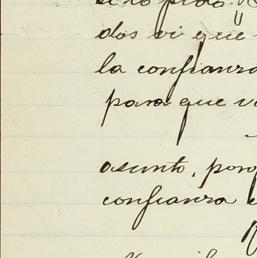 se lo pido.
dos vi que
la confianza
para que v
asunto, porq
confianza e